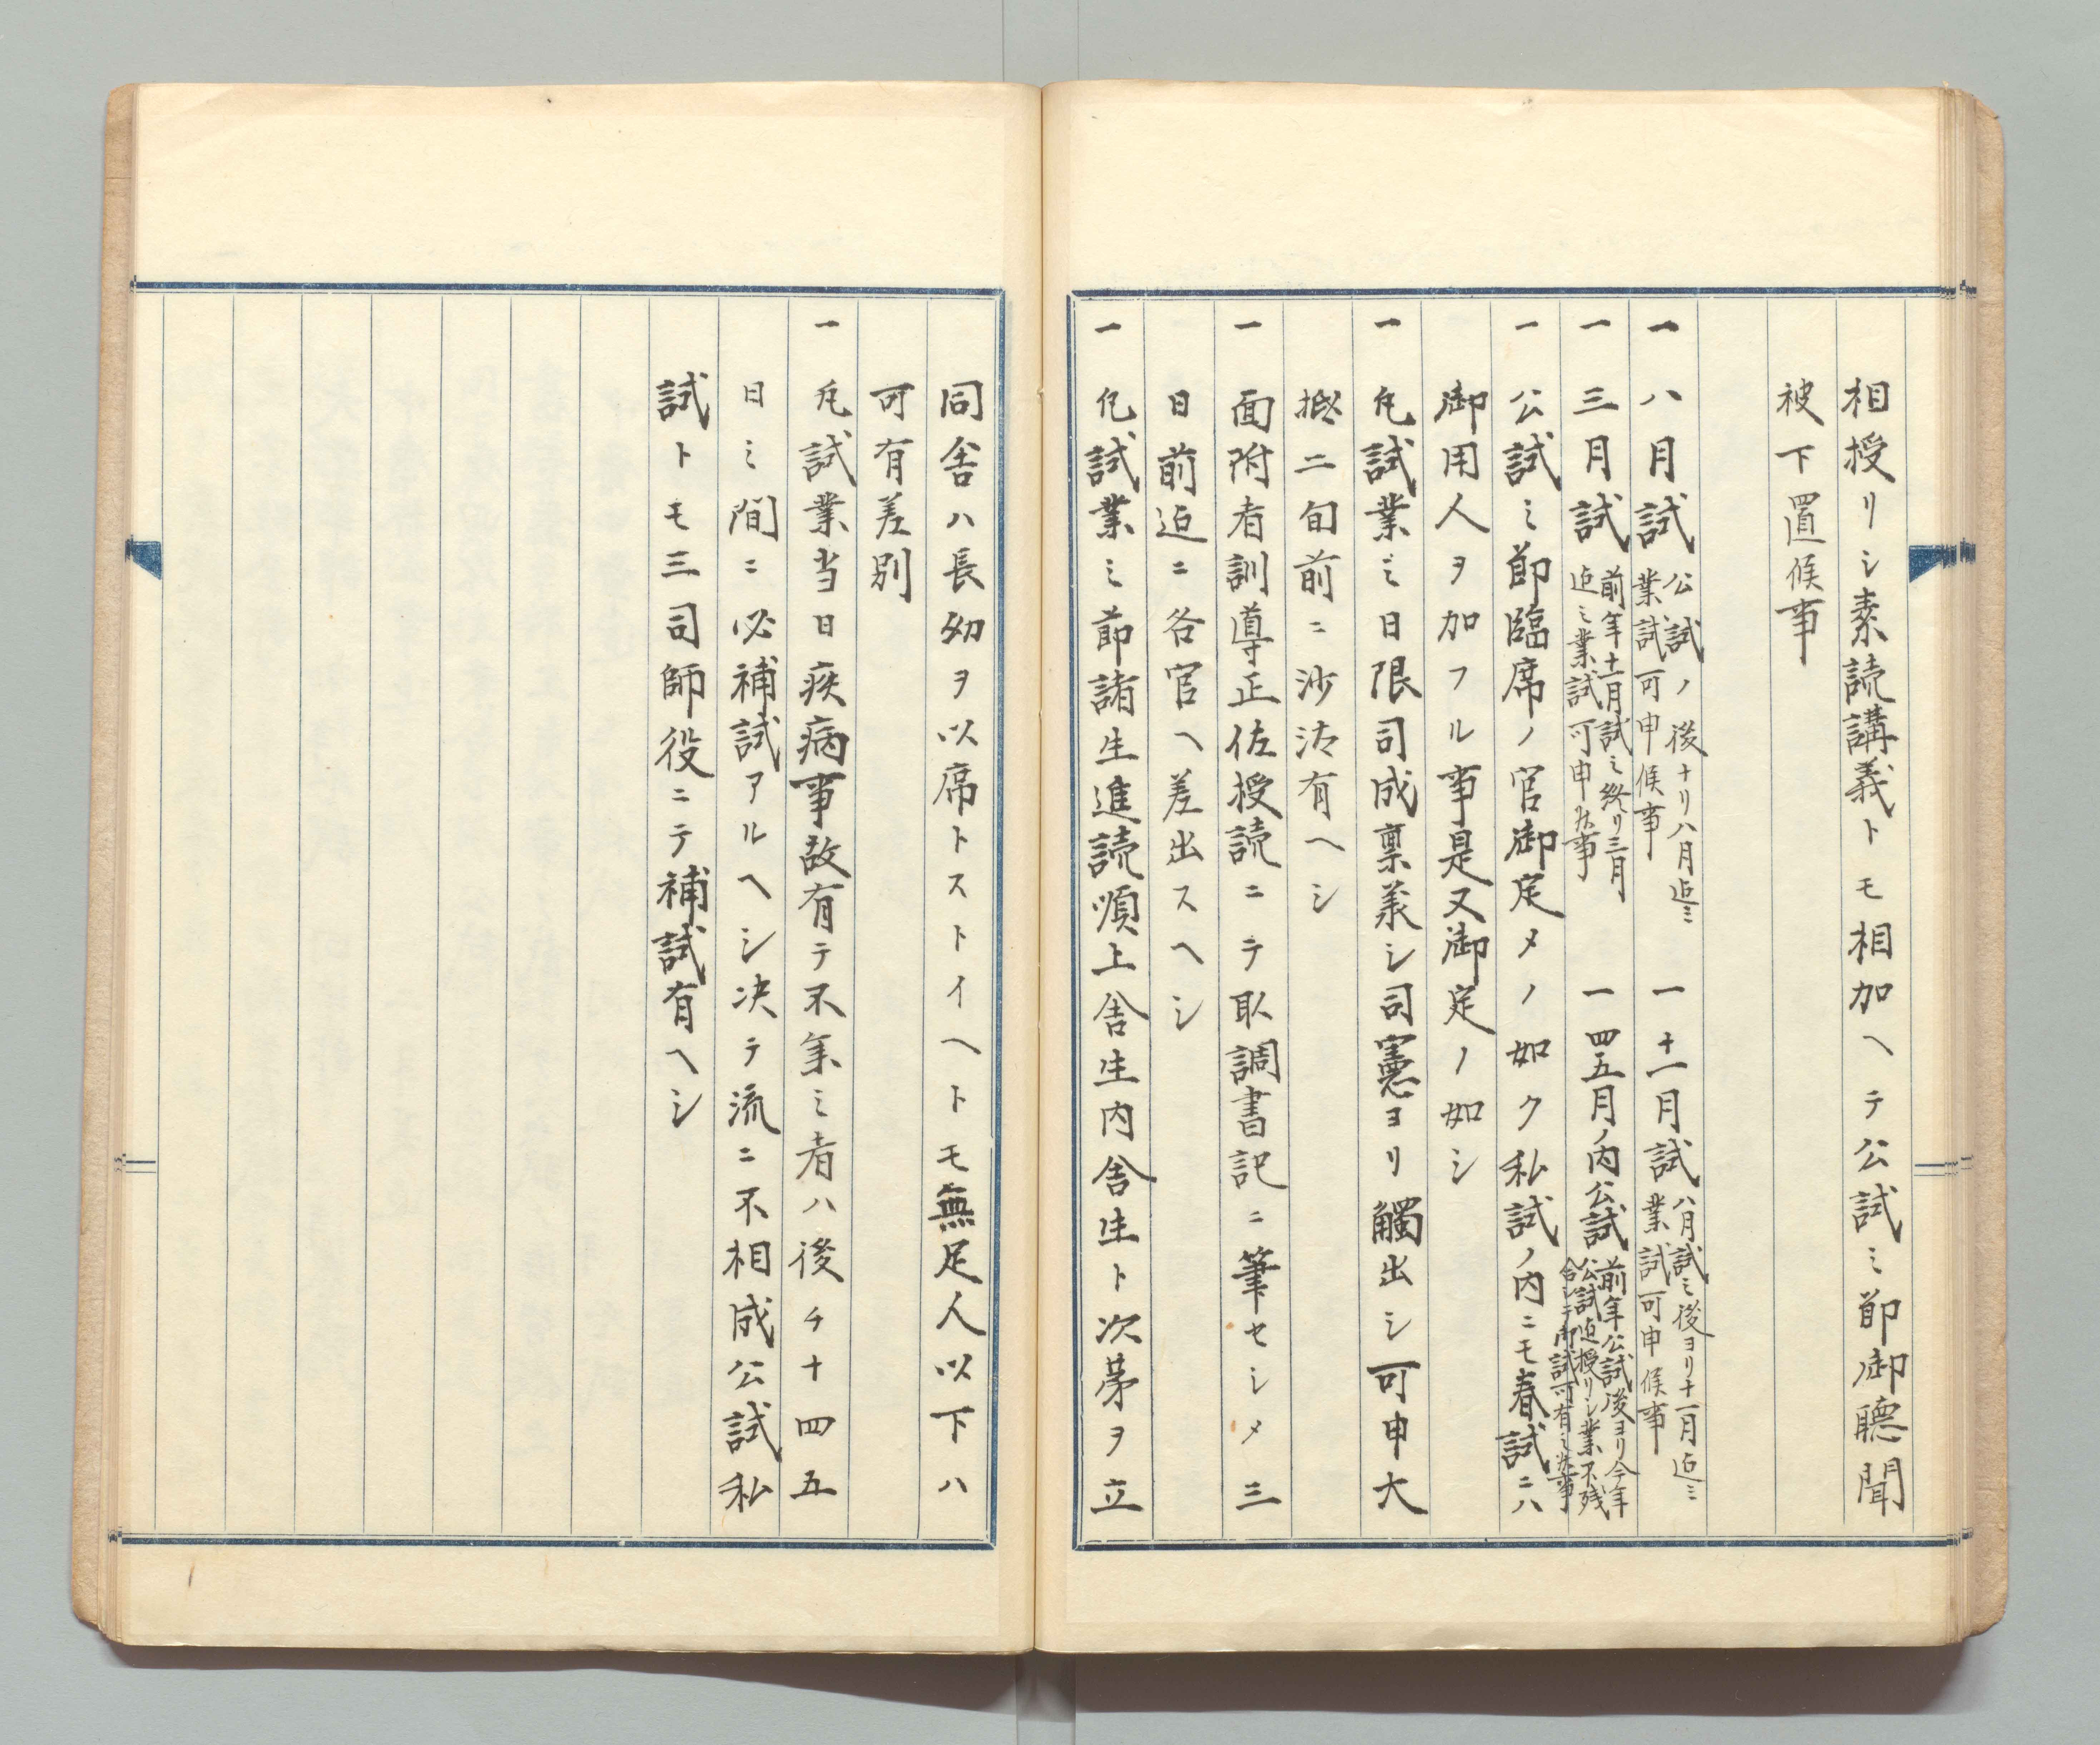 相授リシ素読講義トモ相加ヘテ公試之節御聴聞
被下置候事
一 八月試 公試ノ後ヨリ八月迄之業試可申候事 一 十一月試 八月試之後ヨリ十一月迄之業試可申候事
一 三月試 前年十一月試之終リ三月迄之業試可申候事 一 四五月ノ内公試 前年公試後ヨリ今年公試迄授リシ業不残合シテ御試可有之候事
一 公試之節臨席ノ官御定メノ如ク私試ノ内ニモ春試ニハ
御用人ヲ加フル事是又御定ノ如シ
一 凡試業之日限司成禀義シ司憲ヨリ觸出シ可申大
抵二旬前ニ沙汰有ヘシ
一 面附者訓導正佐授読ニテ取調書記ニ筆セシメ三
日前迄ニ各官ヘ差出スヘシ
一 凡試業之節諸生進読順上舎生内舎生ト次第ヲ立
同舎ハ長幼ヲ以席トストイヘトモ無足人以下ハ
可有差別
一 凡試業当日疾病事故有テ不参之者ハ後チ十四五
日之間ニ必補試アルヘシ决テ流ニ不相成公試私
試トモ三司師役ニテ補試有ヘシ